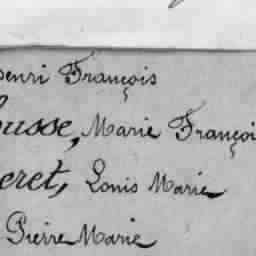 Henri François
ousse, Marie Françoi
eret, Louis Marie
Pierre Marie